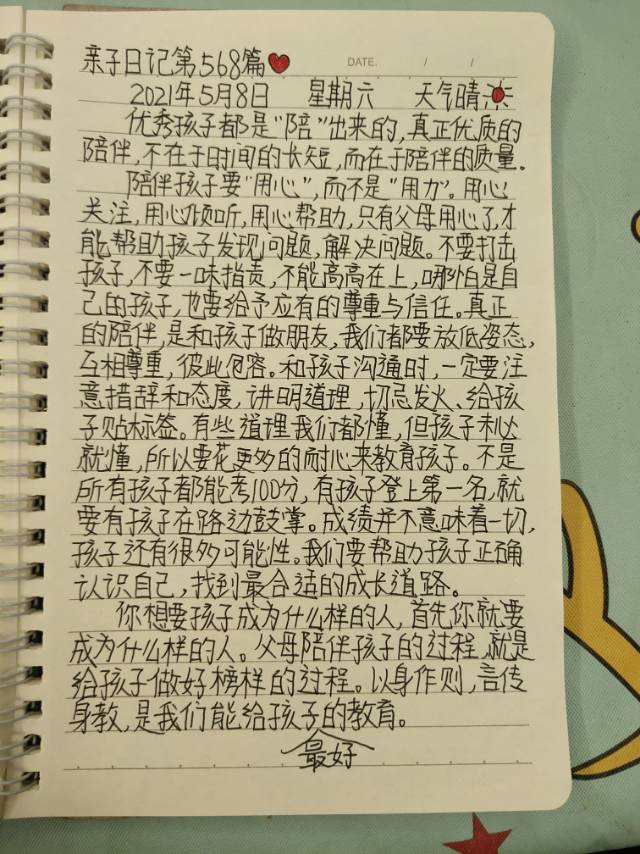 亲子日记第568篇
DATE. / /
2021年5月8日 星期六 天气晴
优秀孩子都是“陪”出来的,真正优质的
陪伴,不在于时间的长短,而在于陪伴的质量.
陪伴孩子要“用心”,而不是“用力”。用心
关注,用心倾听,用心帮助,只有父母用心了,才
能帮助孩子发现问题,解决问题。不要打击
孩子,不要一味指责,不能高高在上,哪怕是自
己的孩子,也要给予应有的尊重与信任。真正
的陪伴,是和孩子做朋友,我们都要放低姿态,
互相尊重,彼此包容。和孩子沟通时,一定要注
意措辞和态度,讲明道理,切忌发火、给孩
子贴标签。有些道理我们都懂,但孩子未必
就懂,所以要花更多的耐心来教育孩子。不是
所有孩子都能考100分,有孩子登上第一名,就
要有孩子在路边鼓掌。成绩并不意味着一切,
孩子还有很多可能性。我们要帮助孩子正确
认识自己,找到最合适的成长道路。
你想要孩子成为什么样的人,首先你就要
成为什么样的人。父母陪伴孩子的过程,就是
给孩子做好榜样的过程。以身作则,言传
身教,是我们能给孩子的教育。
最好